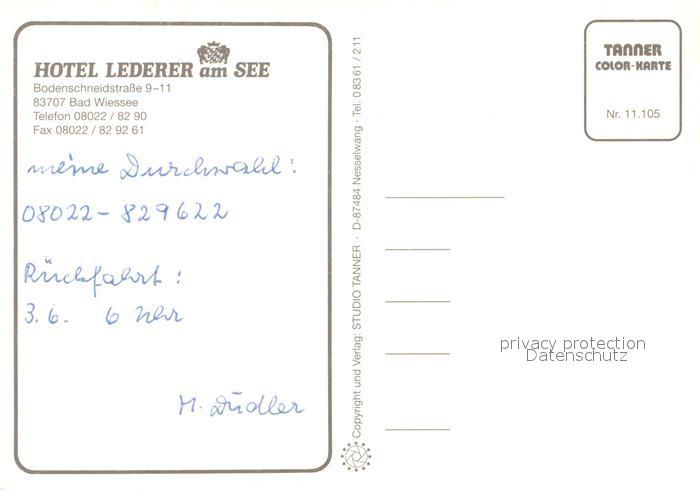 HOTEL LEDERER am SEE
Bodenschneidstraße 9–11
83707 Bad Wiessee
Telefon 08022 / 82 90
Fax 08022 / 82 92 61
meine Durchwahl:
08022 – 829622
Rückfahrt:
3.6. 6 Uhr
M. Düdler
Copyright und Verlag: STUDIO TANNER · D-87484 Nesselwang · Tel. 0 83 61 / 2 11
TANNER
COLOR-KARTE
Nr. 11.105
privacy protection
Datenschutz